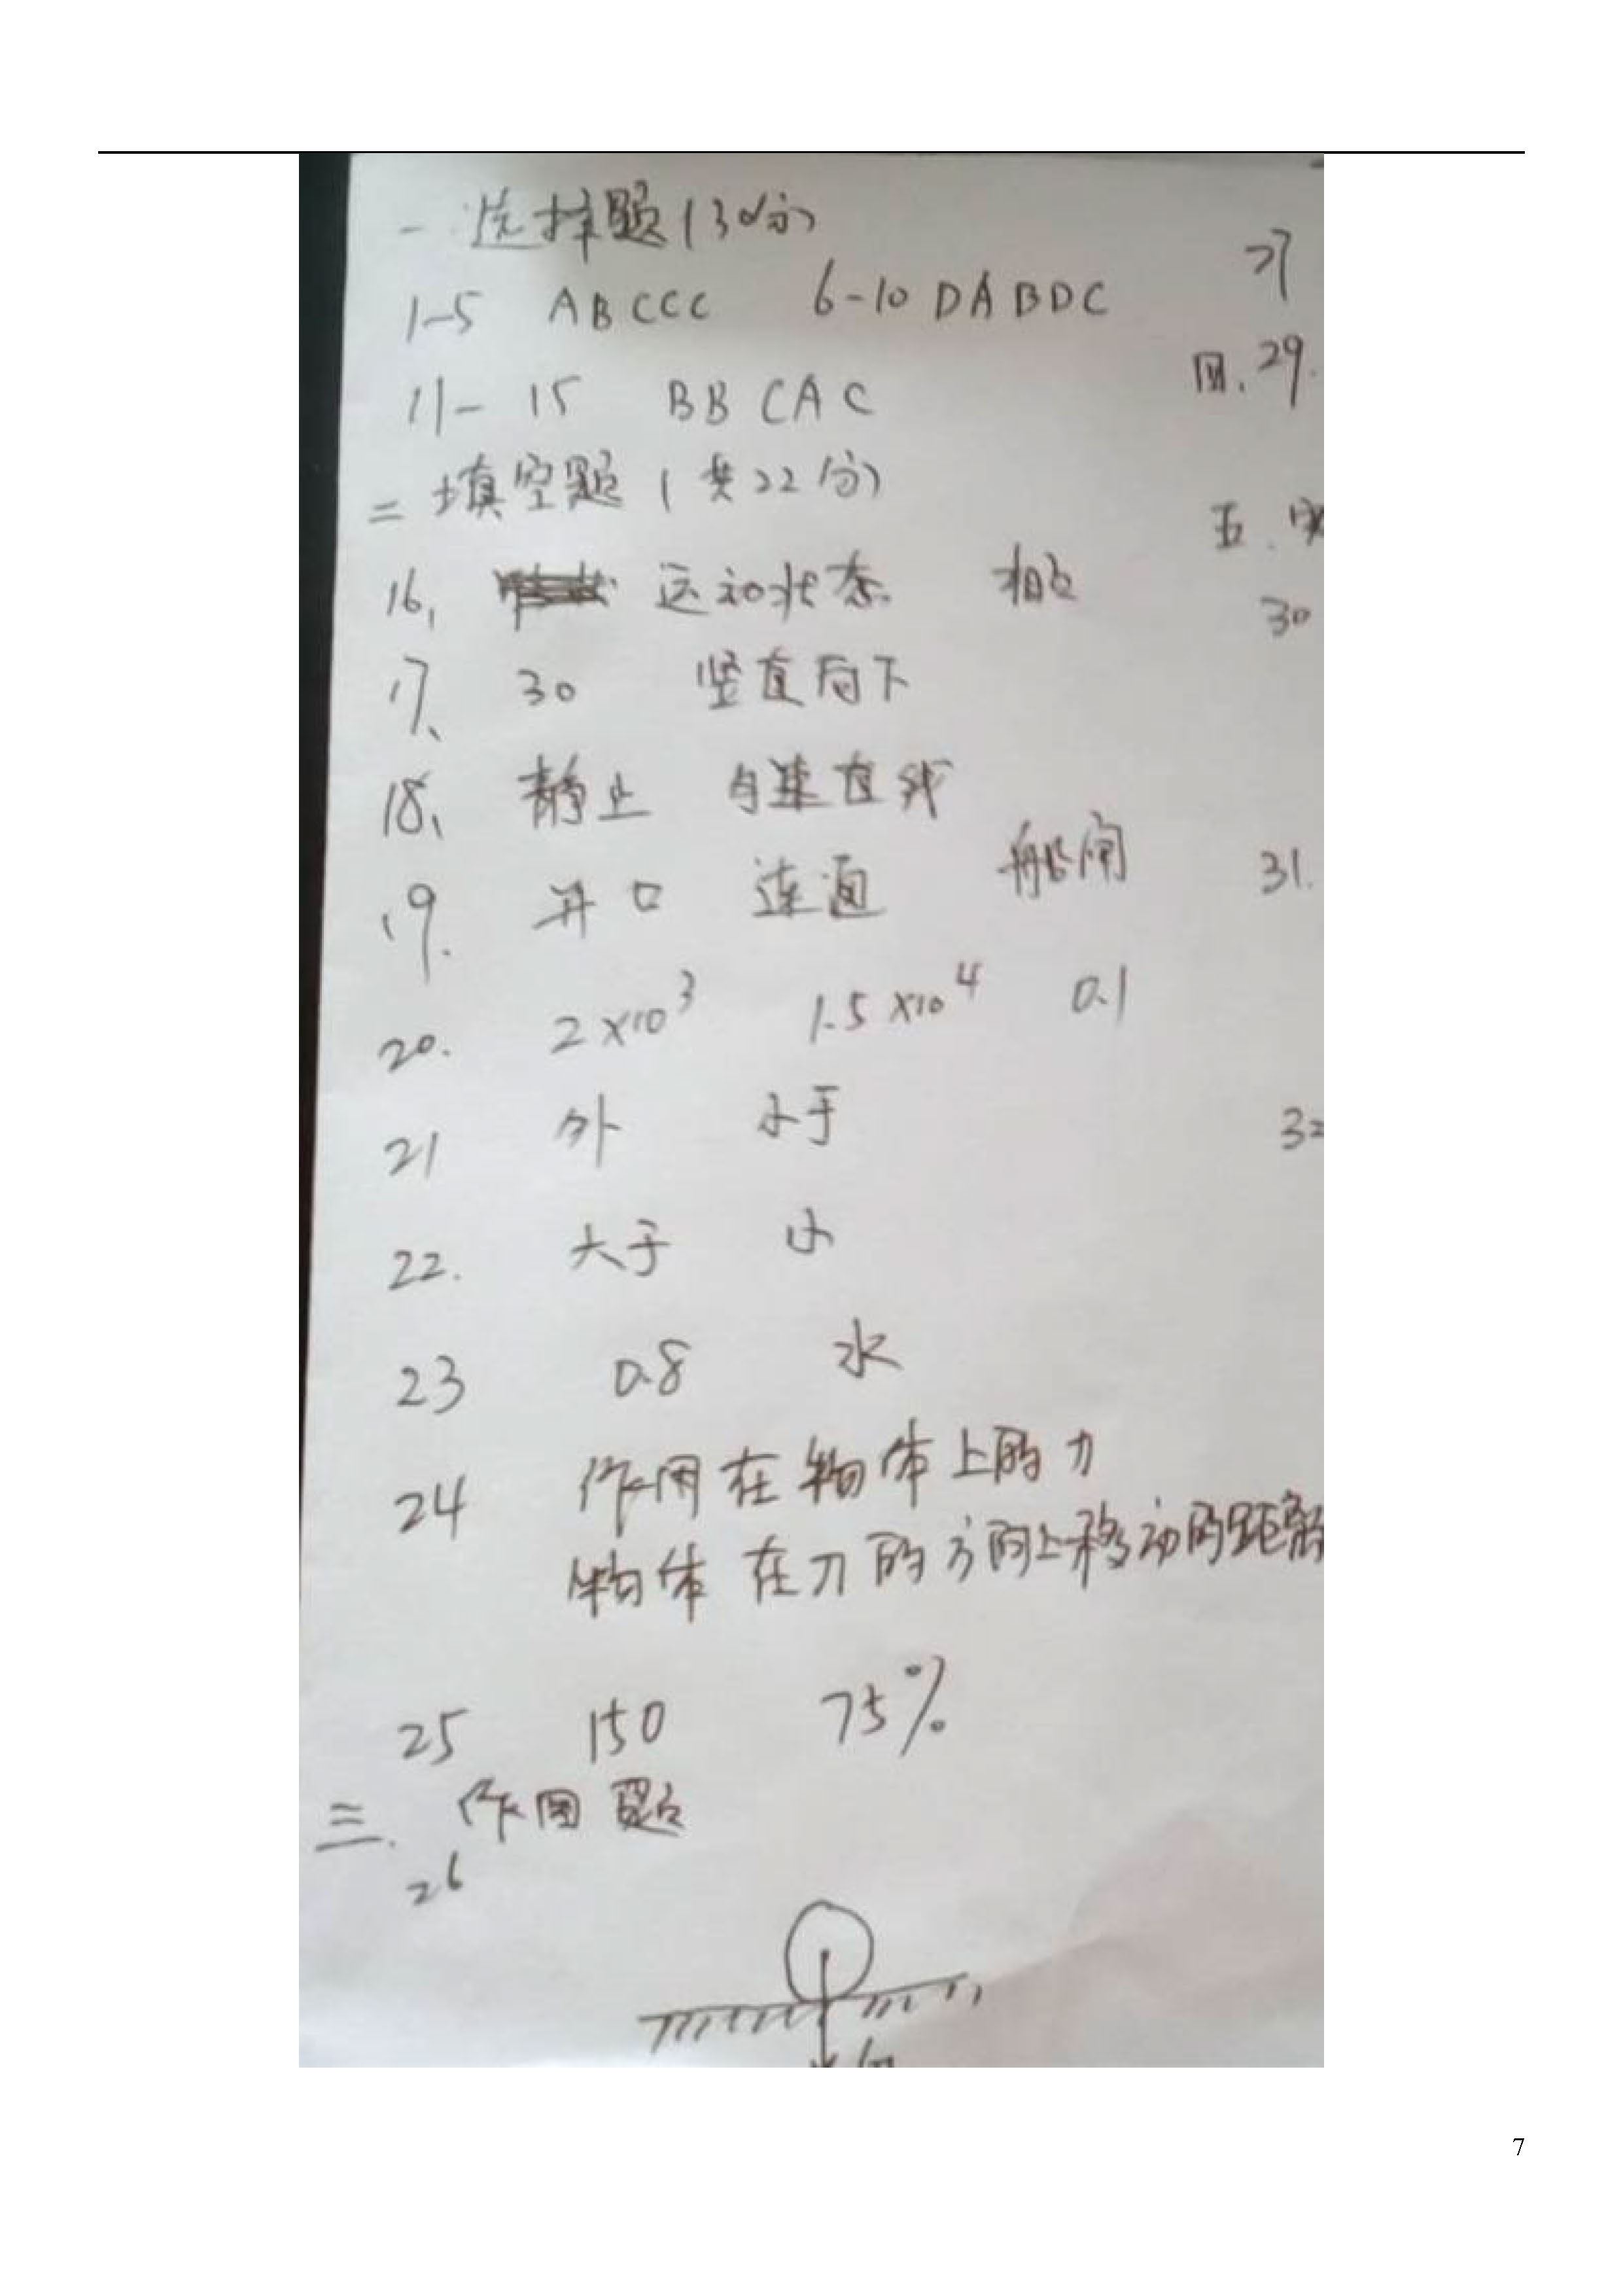 一 选择题(30分)
1-5 ABCCC 6-10 DABDC
11-15 BBCAC
二 填空题(共22分)
16、运动状态 相互
17、30 竖直向下
18、静止 匀速直线
19. 开口 连通 船闸
20. 2×10³ 1.5×10⁴ 0.1
21 外 小于
22. 大于 小
23 0.8 水
24 作用在物体上的力
物体在力的方向上移动的距离
25 150 75%
三. 作图题
26
27
四、29.
五、
30
31.
32
7